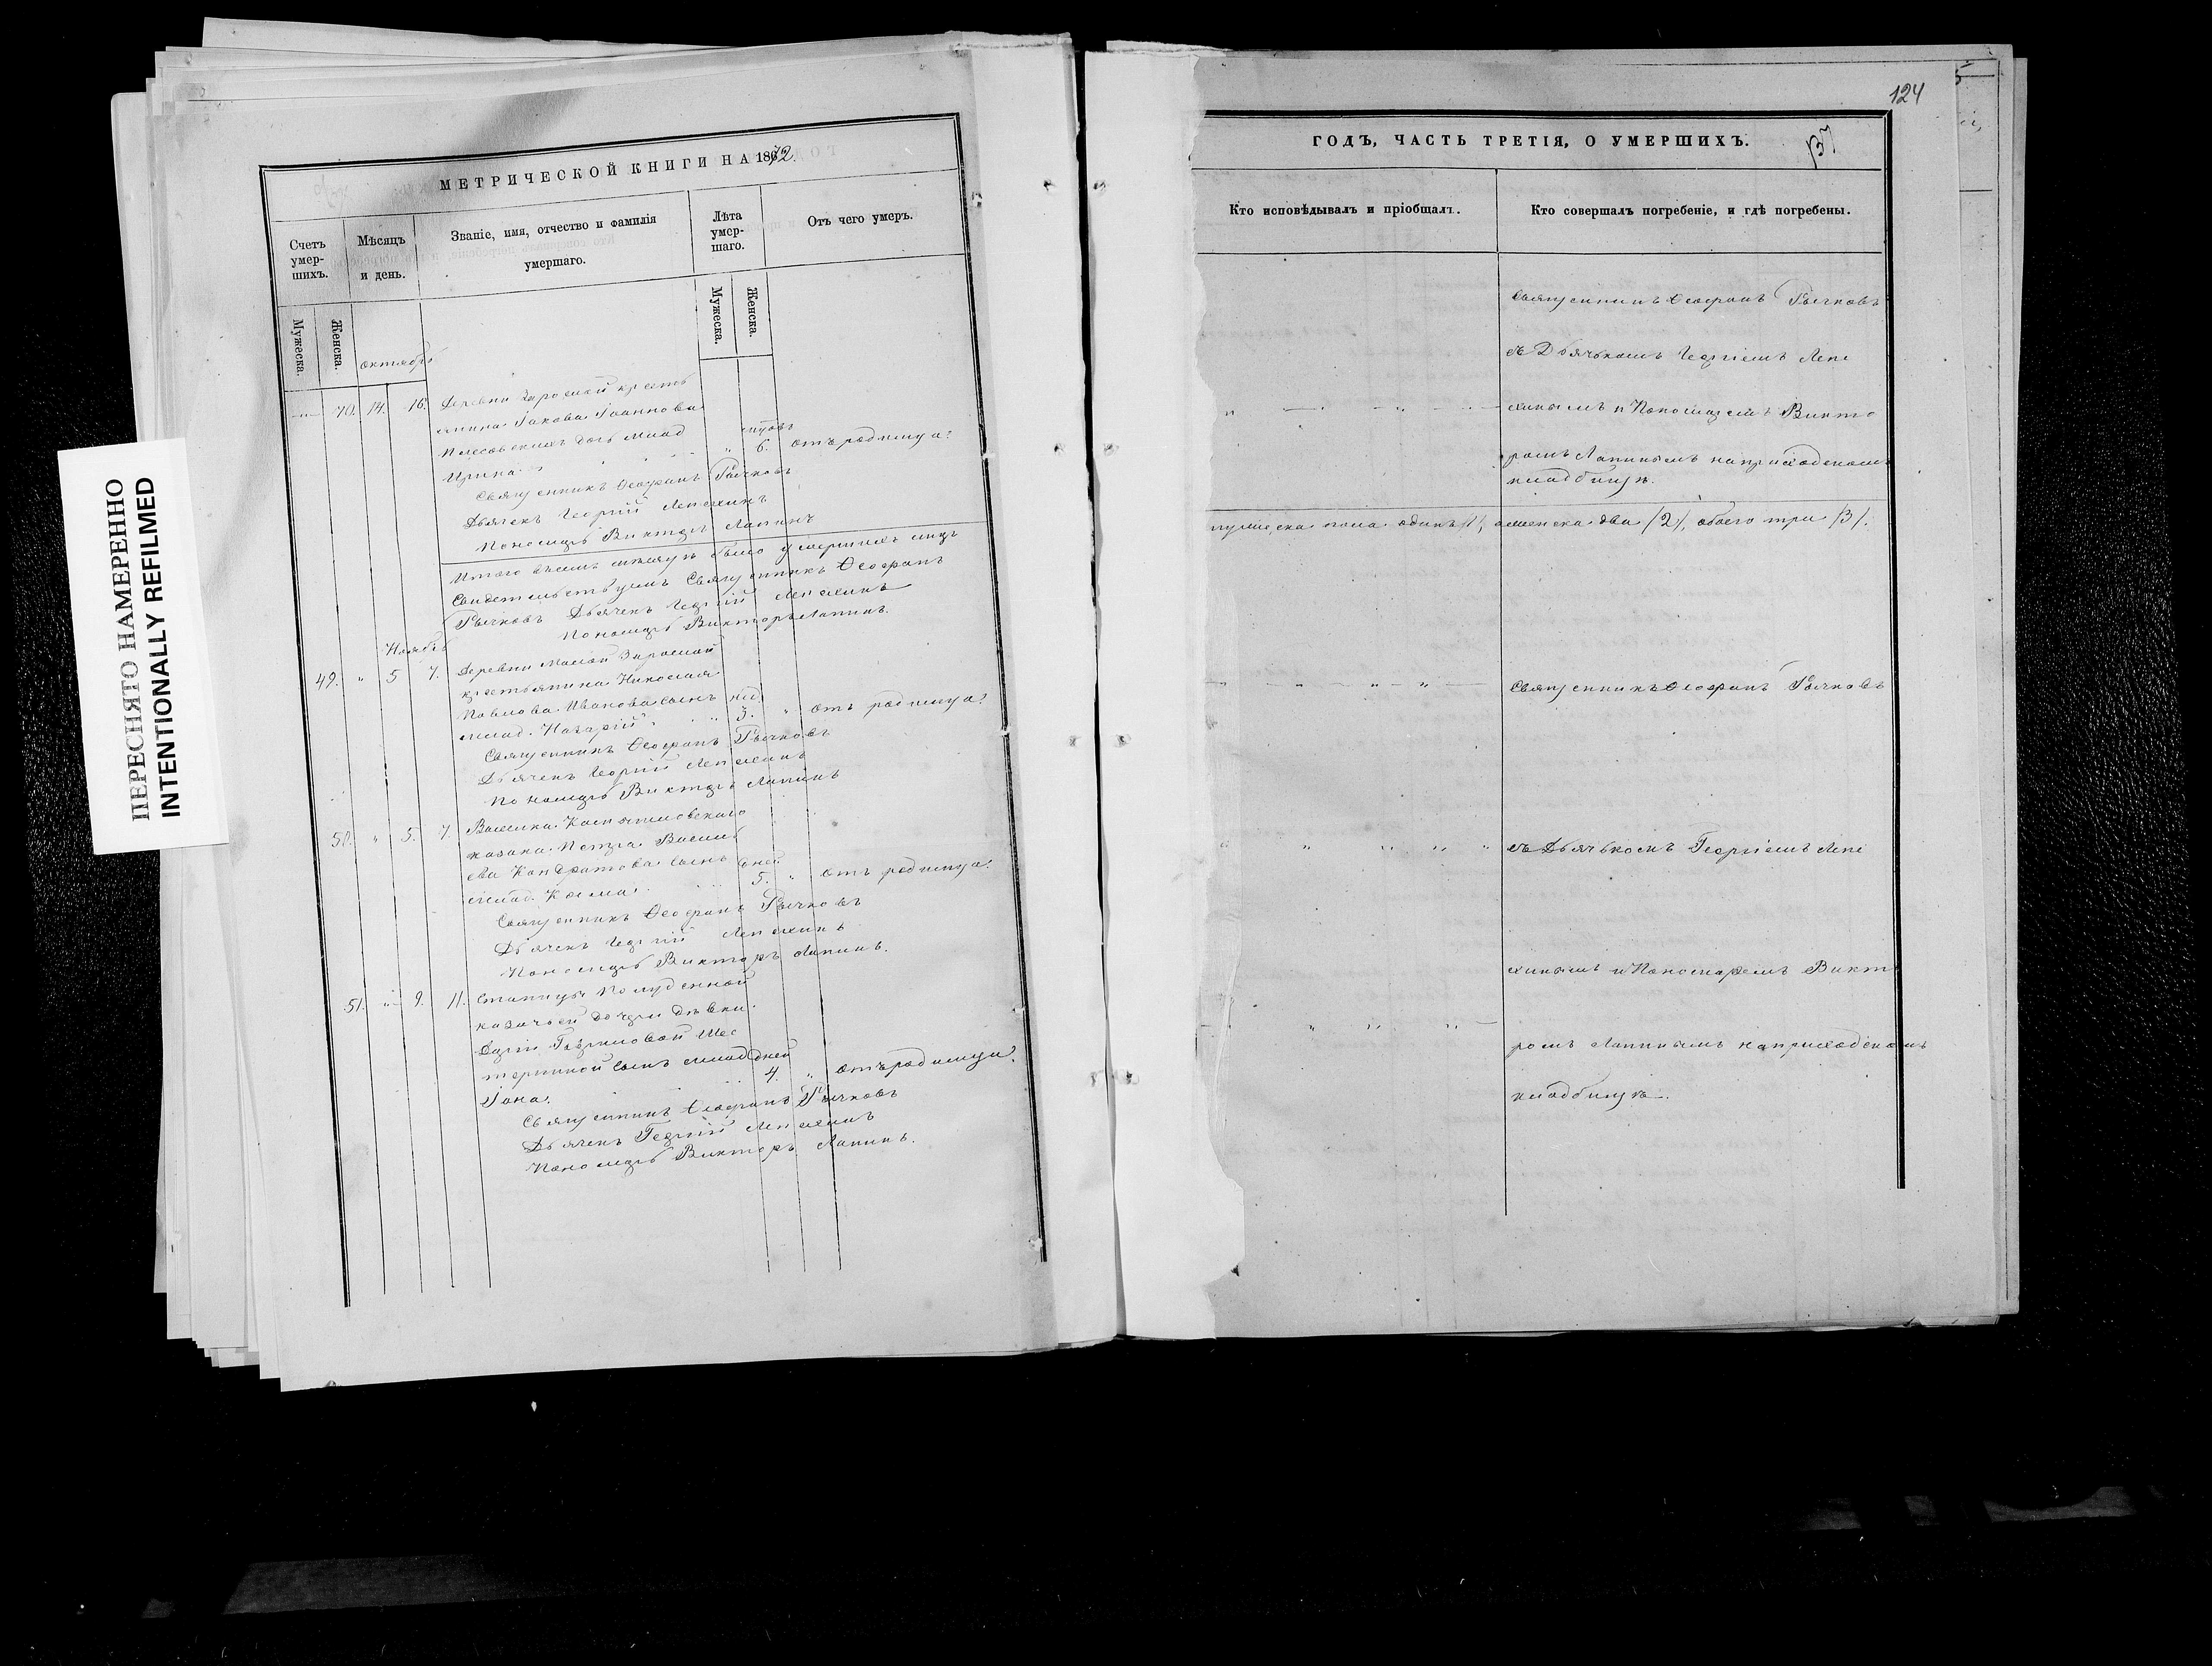 124
137
МЕТРИЧЕСКОЙ КНИГИ НА 1872.
Счетъ умер-шихъ.
Мѣсяцъ и день.
Званіе, имя, отчество и фамилія умершаго.
Лѣта умер-шаго.
Отъ чего умеръ.
Мужеска.
Женска.
Мужеска.
Женска.
октябрь
70. 14. 16. Деревни Зарослой кресть
янина Іакова Іоаннова
дочь млад
Ирина 6. отъ родимца
Священникъ Ѳеофанъ Рычковъ
Дьячекъ Георгій Лепехинъ
Пономарь Викторъ Лапинъ
Итого всемъ мѣсяцѣ было умершихъ лицъ
Свидетельствуемъ Священникъ Ѳеофанъ
Рычковъ Дьячекъ Георгій Лепехинъ
Пономарь Викторъ Лапинъ.
Ноябрь
49. " 5 7. Деревни Малой Зарослой
крестьянина Николая
Павлова Иванова сынъ нед.
млад. Назарій 3. " отъ родимца
Священникъ Ѳеофанъ Рычковъ
Дьячекъ Георгій Лепехинъ
Пономарь Викторъ Лапинъ
50. " 5. 7.
казака Петра Василь
ева Кондратова сынъ дней
млад. Косма 5. " отъ родимца
Священникъ Ѳеофанъ Рычковъ
Дьячекъ Георгій Лепехинъ
Пономарь Викторъ Лапинъ.
51. " 9. 11. Станицы Полуденной
казачьей дочери дѣвки
Дарьи Гавриловой Шес
териной сынъ млад дней
Іона. 4. " отъ родимца
Священникъ Ѳеофанъ Рычковъ
Дьячекъ Георгій Лепехинъ
Пономарь Викторъ Лапинъ.
ПЕРЕСНЯТО НАМЕРЕННО
INTENTIONALLY REFILMED
ГОДЪ, ЧАСТЬ ТРЕТІЯ, О УМЕРШИХЪ.
Кто исповѣдывалъ и пріобщалъ.
Кто совершалъ погребеніе, и гдѣ погребены.
Священникъ Ѳеофанъ Рычковъ
съ Дьячькомъ Георгіемъ Лепе
хинымъ и Пономаремъ Викто
ромъ Лапинымъ на приходскомъ
кладбищѣ.
мужеска пола одинъ /1/, женска два /2/, обоего три /3/.
Священникъ Ѳеофанъ Рычковъ
съ Дьячькомъ Георгіемъ Лепе
хинымъ и Пономаремъ Викто
ромъ Лапинымъ на приходскомъ
кладбищѣ.